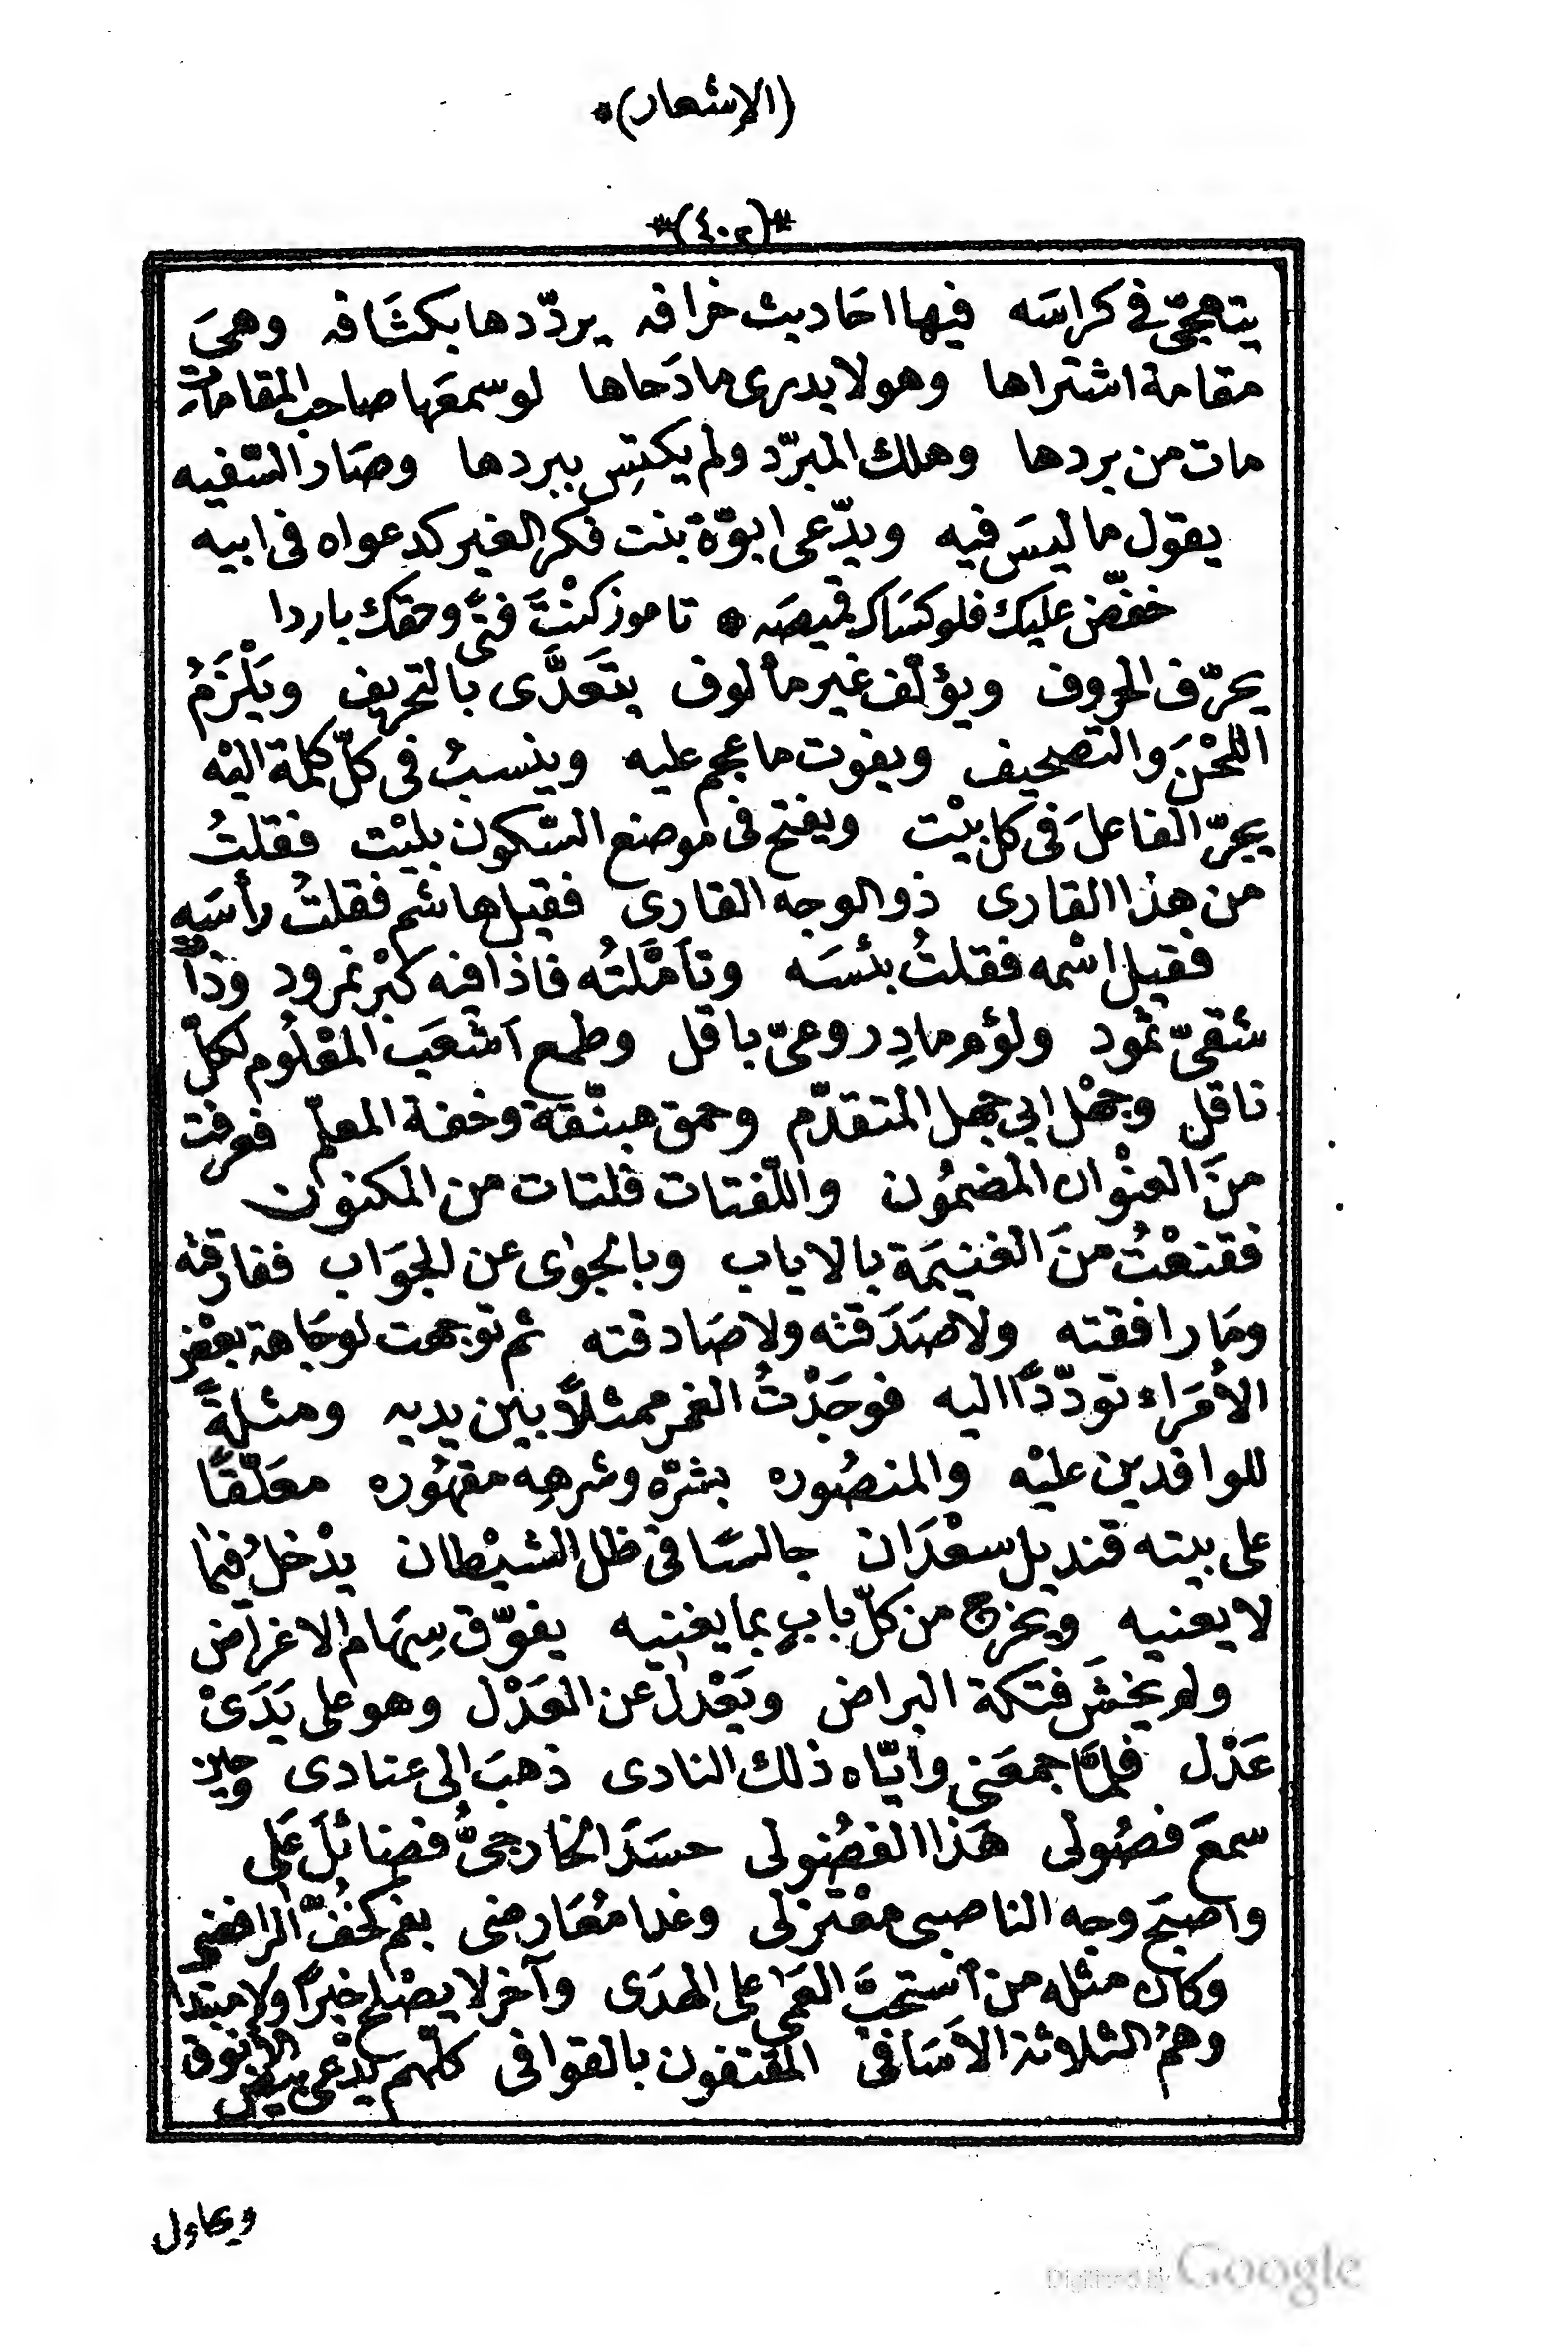 (الإشعار)*
*(٤٠٢)*
يتهجّى فى كراسَه فيها احَاديث خرافه يردّدها بكثَافه وهىَ
مقامة اشتراها وهو لا يدرى ما دَحاها لو سمعَها صاحب المقامات
مات من بردها وهلك المبرّد ولم يكتسِ ببردها وصَار السّفيه
يقول ما ليسَ فيه ويدّعى ابوّة بنت فكر الغير كدعواه فى ابيه
خفّض عليك فلو كسَاك قميصَه * تا موز كنْتَ فتًى وحقك باردا
يحرّف الحروف ويؤلّف غير مألوف يتَعدَّى بالتحريف ويَلْزَمُ
اللّحْنَ والتصحيف ويفوت ما عجم عليه وينسبُ فى كلّ كلمة اليْه
يجرّ الفاعلَ فى كل بيْت ويفتح فى موضع السّكون بليْت فقلتُ
من هذا القارى ذو الوجه القارى فقيل هاشم فقلتُ رأسَه
فقيل اسْمه فقلتُ بئسَه وتأمَّلتُه فاذا فيه كبْر نمرود وذلّ
شقىّ ثمود ولؤم مادِر وعىّ باقل وطمع اَشْعَب المعْلُوم لكلّ
ناقل وجهْل ابى جهل المتقدّم وحمق هبنّقة وخفة المعلّم فعرفت
منَ العنْوان المضمُون واللّفتات فلتات من المكنون
فقنعْتُ منَ الغنيَمة بالاياب وبالجوى عن الجوَاب ففارقته
ومَا رافقته ولا صَدَقته ولا صَادقته ثم توجهت لوجَاهة بعْض
الأمَراء تودّدًا اليه فوجَدْتُ الغمر ممثلاً بين يديه ومثلةً
للوافدين عليْه والمنصُوره بشرّه وشرهِه مقهُوره معَلّقًا
على بيته قنديل سعْدَان جالسًا فى ظل الشيْطان يدْخلُ فيما
لا يعنيه ويخرج من كلّ بابٍ بما يغنيه يفوّق سِهَام الاغراض
ولم يخشَ فتكة البراض ويَعْدل عن العَدْل وهو على يَدَىْ
عَدْل فلمَّا جمعَنى وايّاه ذلك النادى ذهبَ الى عنادى وحين
سمعَ فصُولى هَذا الفضُولى حسَدَ الخارجىُّ فضائلَ عَلى
وأصبحَ وجه الناصبى معْتزلى وغدا مُعَارضى بفم كخُفِّ الرافضى
وكان مثله من اَستحبَّ العَمى على الهدَى وآخر لا يصْلح خبرًا ولا مبتدا
وهمُ الثلاثة الأثافى المقتفون بالقوافى كلّهم يدْعى بيض الأنوق
ويحاول
Digitized by Google